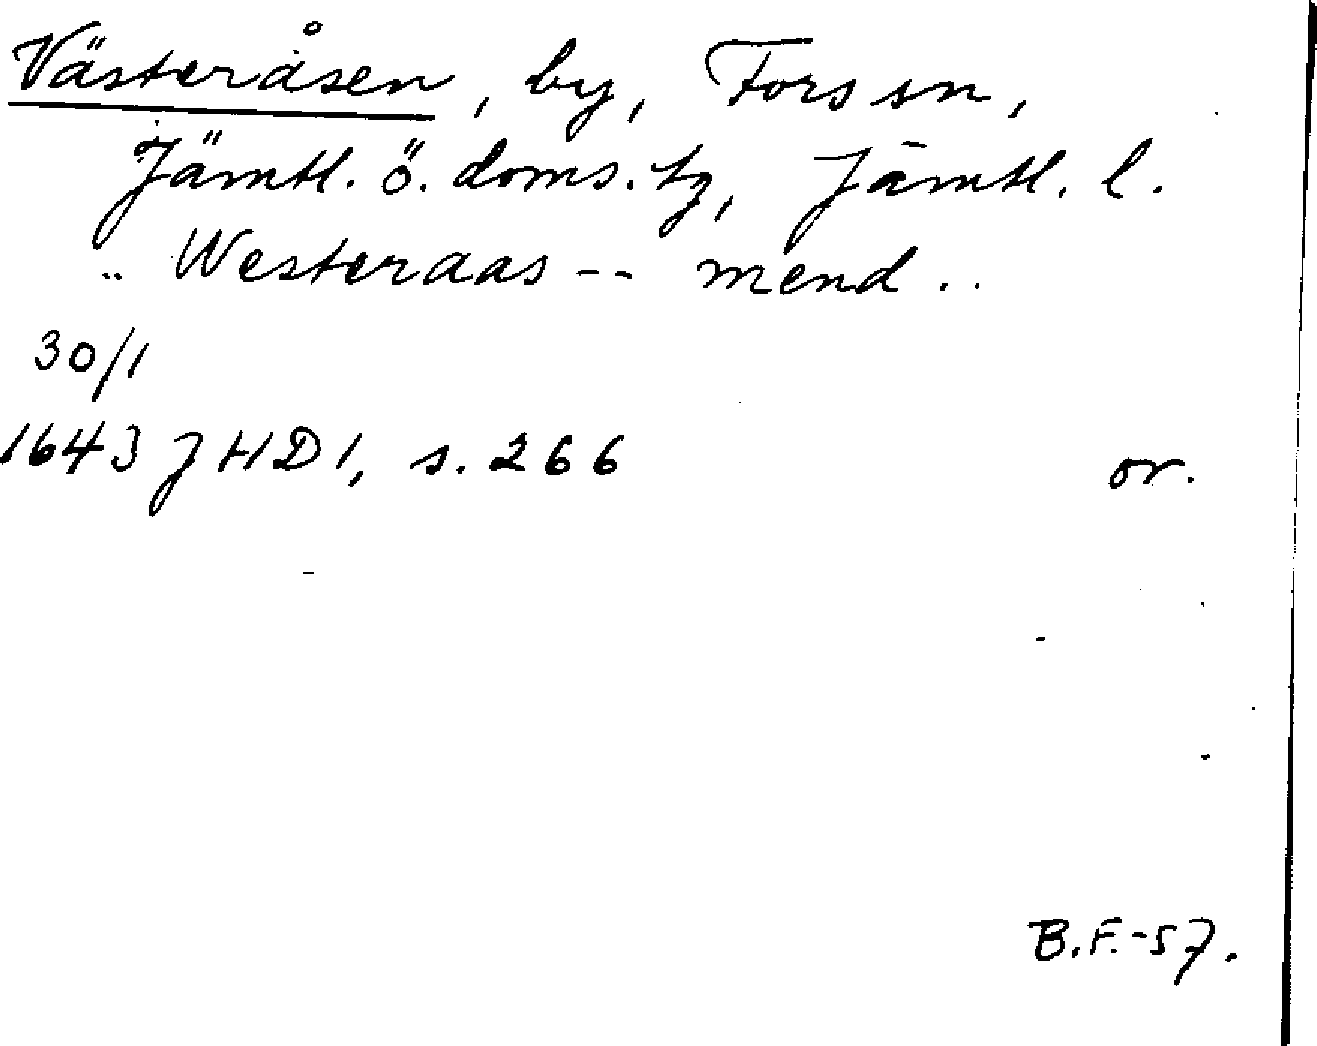 Västeråsen, by, Fors sn,
Jämtl. ö. doms. tg, Jämtl. l.
.. Westeraas -- mend ..
30/1
1643 JHD 1, s. 266 or.
B.F.-57.